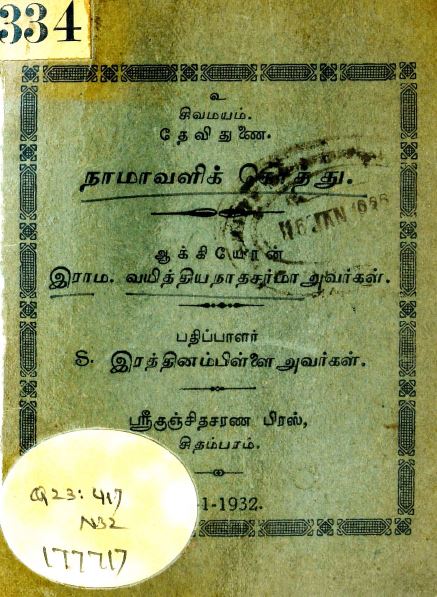 334
உ
சிவமயம்.
தேவி துணை.
நாமாவளிக் கொத்து.
16 JAN
ஆக்கியோன்
இராம. வயித்தியநாதசர்மா அவர்கள்.
பதிப்பாளர்
S. இரத்தினம்பிள்ளை அவர்கள்.
ஸ்ரீகுஞ்சிதசரண பிரஸ்,
சிதம்பரம்.
-1-1932.
Q23:417
N32
177717